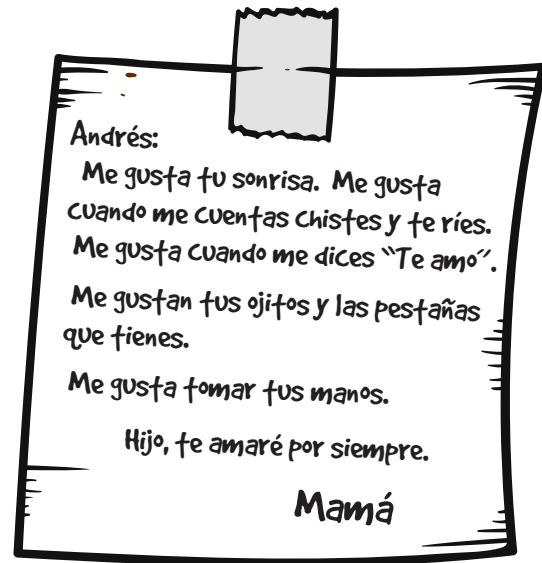 Andrés:
Me gusta tu sonrisa. Me gusta
cuando me cuentas chistes y te ríes.
Me gusta cuando me dices “Te amo”.
Me gustan tus ojitos y las pestañas
que tienes.
Me gusta tomar tus manos.
Hijo, te amaré por siempre.
Mamá